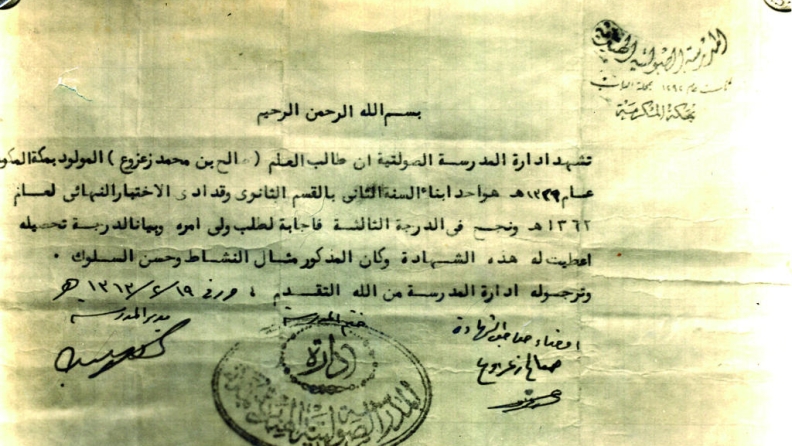 المدرسة الصولتية الهندية
تأسست عام ١٢٩٢ بمحلة الباب
بمكة المكرمة
بسم الله الرحمن الرحيم
تشهد ادارة المدرسة الصولتية ان طالب العلم ( صالح بن محمد زعزوع ) المولود بمكة المكر
عام ١٣٢٩ هـ هو احد ابناء السنة الثانى بالقسم الثانوى وقد ادى الاختبار النهائى لعام
١٣٦٢ هـ ونجح فى الدرجة الثالثة فاجابة لطلب ولى امره وبيانا لدرجة تحصيله
اعطيت له هذه الشهادة وكان المذكور مثال النشاط وحسن السلوك .
وترجو له ادارة المدرسة من الله التقدم ، حرر فى ١٩/ ٢/ ١٣٦٣ هـ
مدير المدرسة
ختم المدرسة
امضاء صاحب الشهادة
صالح زعزوع
ادارة
المدرسة الصولتية